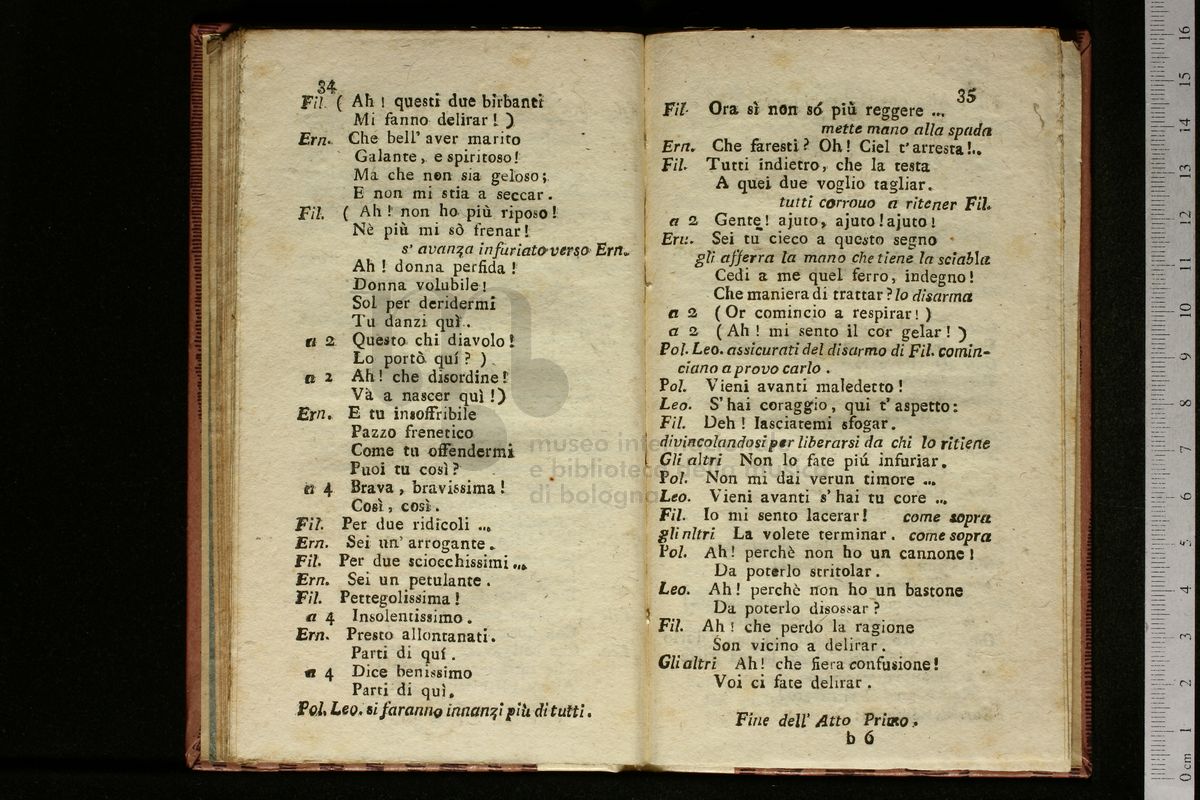 34
Fil. ( Ah ! questi due birbanti
Mi fanno delirar ! )
Ern. Che bell' aver marito
Galante, e spiritoso!
Ma che non sia geloso;
E non mi stia a seccar.
Fil. ( Ah ! non ho più riposo!
Nè più mi sò frenar!
s' avanza infuriato verso Ern.
Ah ! donna perfida !
Donna volubile!
Sol per deridermi
Tu danzi quì.
a 2 Questo chi diavolo!
Lo portò quí ? )
a 2 Ah! che disordine!
Và a nascer quì !)
Ern. E tu insoffribile
Pazzo frenetico
Come tu offendermi
Puoi tu così?
a 4 Brava, bravissima !
Così, così.
Fil. Per due ridicoli ...
Ern. Sei un' arrogante.
Fil. Per due sciocchissimi ...
Ern. Sei un petulante.
Fil. Pettegolissima!
a 4 Insolentissimo.
Ern. Presto allontanati.
Parti di quí.
a 4 Dice benissimo
Parti di quì.
Pol. Leo. si faranno innanzi più di tutti.
35
Fil. Ora sì non só più reggere ...
mette mano alla spada
Ern. Che faresti? Oh! Ciel t'arresta!..
Fil. Tutti indietro, che la testa
A quei due voglio tagliar.
tutti corrouo a ritener Fil.
a 2 Gente! ajuto, ajuto! ajuto!
Ern. Sei tu cieco a questo segno
gli afferra la mano che tiene la sciabla
Cedi a me quel ferro, indegno!
Che maniera di trattar? lo disarma
a 2 (Or comincio a respirar!)
a 2 (Ah! mi sento il cor gelar!)
Pol. Leo. assicurati del disarmo di Fil. comin-
ciano a provo carlo.
Pol. Vieni avanti maledetto!
Leo. S' hai coraggio, qui t'aspetto:
Fil. Deh! lasciatemi sfogar.
divincolandosi per liberarsi da chi lo ritiene
Gli altri Non lo fate piú infuriar.
Pol. Non mi dai verun timore ...
Leo. Vieni avanti s' hai tu core ...
Fil. Io mi sento lacerar! come sopra
gli nltri La volete terminar. come sopra
Pol. Ah! perchè non ho un cannone!
Da poterlo stritolar.
Leo. Ah! perchè non ho un bastone
Da poterlo disossar?
Fil. Ah! che perdo la ragione
Son vicino a delirar.
Gli altri Ah! che fiera confusione!
Voi ci fate delirar.
Fine dell' Atto Primo.
b 6
museo inte
e biblioteca della musica
di bologna
0 cm 1 2 3 4 5 6 7 8 9 10 11 12 13 14 15 16